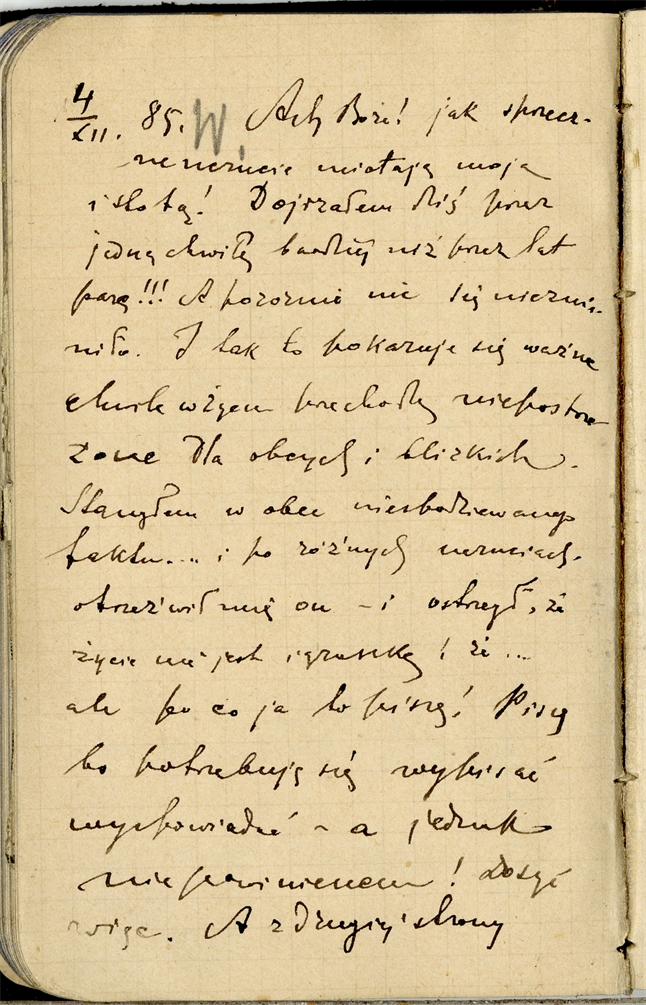 4/XII. 85. W. Ach Boże! jak sprzecz-
ne uczucie miotają moją
istotą! Dojrzałem dziś przez
jedną chwilę bardziej niż przez lat
parę!!! A pozornie nic się niezmie-
niło. I tak to pokazuje się ważne
chwile w życiu przechodzą niepostrze-
żone dla obcych i blizkich.
Stanąłem w obec niespodziewanego
faktu.... i po różnych uczuciach.
otrzeźwił mię on – i ostrzegł, że
życie nie jest igraszką! że ...
ale po co ja to piszę! Piszę
bo potrzebuję się wypisać
wyspowiadać – a jednak
nie powinienem! Dosyć
więc. A z drugiej strony